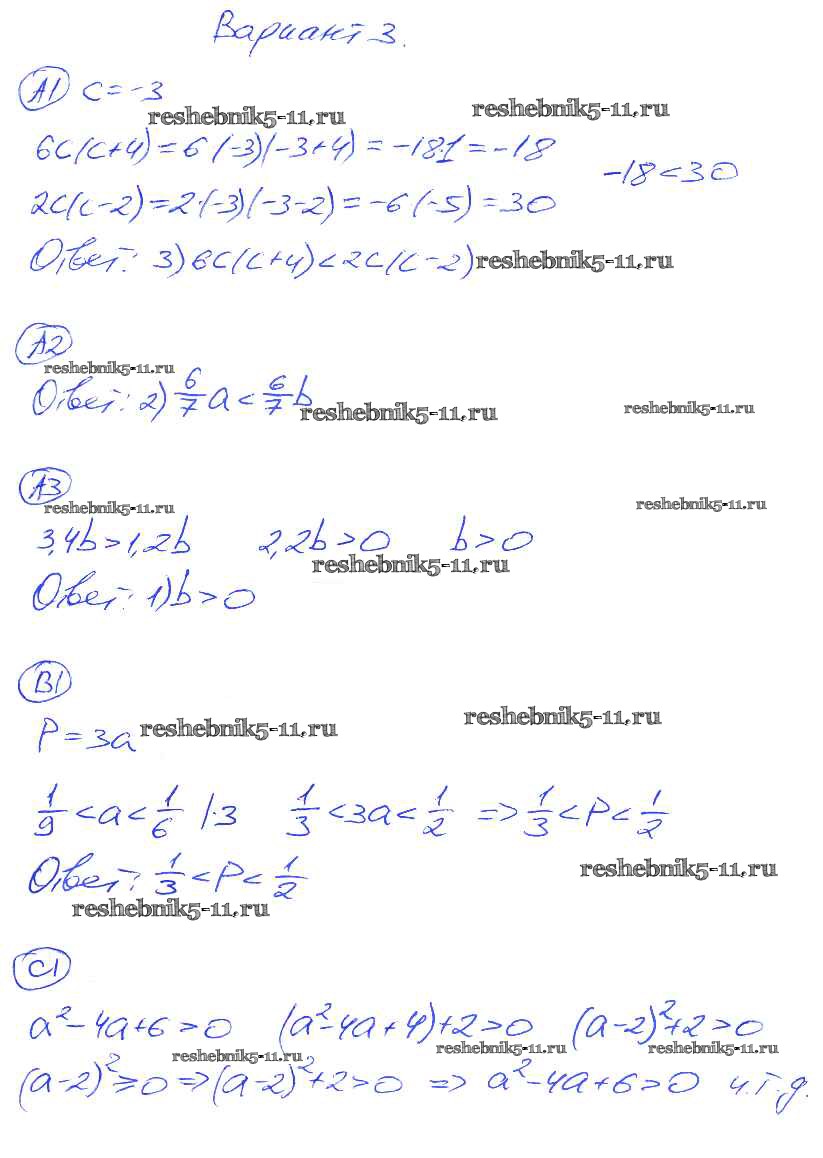 Вариант 3.
А1 c = -3
reshebnik5-11.ru reshebnik5-11.ru
6c(c+4) = 6·(-3)(-3+4) = -18·1 = -18
-18 < 30
2c(c-2) = 2·(-3)(-3-2) = -6·(-5) = 30
Ответ: 3) 6c(c+4) < 2c(c-2) reshebnik5-11.ru
А2
reshebnik5-11.ru
Ответ: 2) 6/7 a < 6/7 b
reshebnik5-11.ru reshebnik5-11.ru
А3
reshebnik5-11.ru reshebnik5-11.ru
3,4b > 1,2b 2,2b > 0 b > 0
reshebnik5-11.ru
Ответ: 1) b > 0
В1
P = 3a reshebnik5-11.ru reshebnik5-11.ru
1/9 < a < 1/6 |·3 1/3 < 3a < 1/2 => 1/3 < P < 1/2
Ответ: 1/3 < P < 1/2 reshebnik5-11.ru
reshebnik5-11.ru
С1
a² - 4a + 6 > 0 (a² - 4a + 4) + 2 > 0 (a-2)² + 2 > 0
reshebnik5-11.ru reshebnik5-11.ru reshebnik5-11.ru
(a-2)² ≥ 0 => (a-2)² + 2 > 0 => a² - 4a + 6 > 0 ч.т.д.